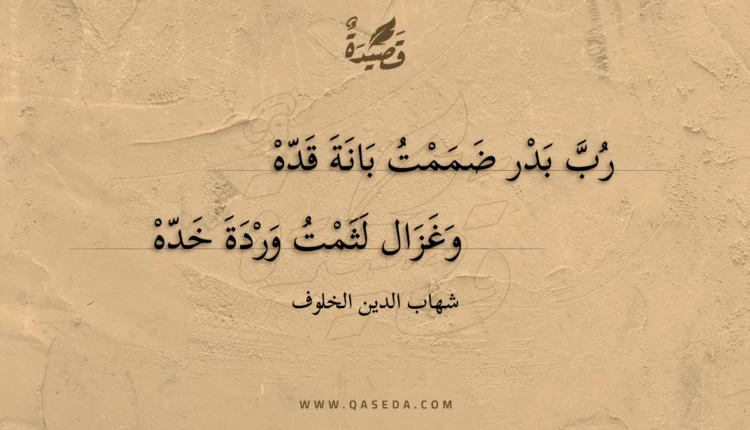 قَصِيْدَةٌ
رُبَّ بَدْر ضَمَمْتُ بَانَةَ قَدّهْ
وَغَزَال لَثَمْتُ وَرْدَةَ خَدّهْ
شهاب الدين الخلوف
WWW.QASEDA.COM